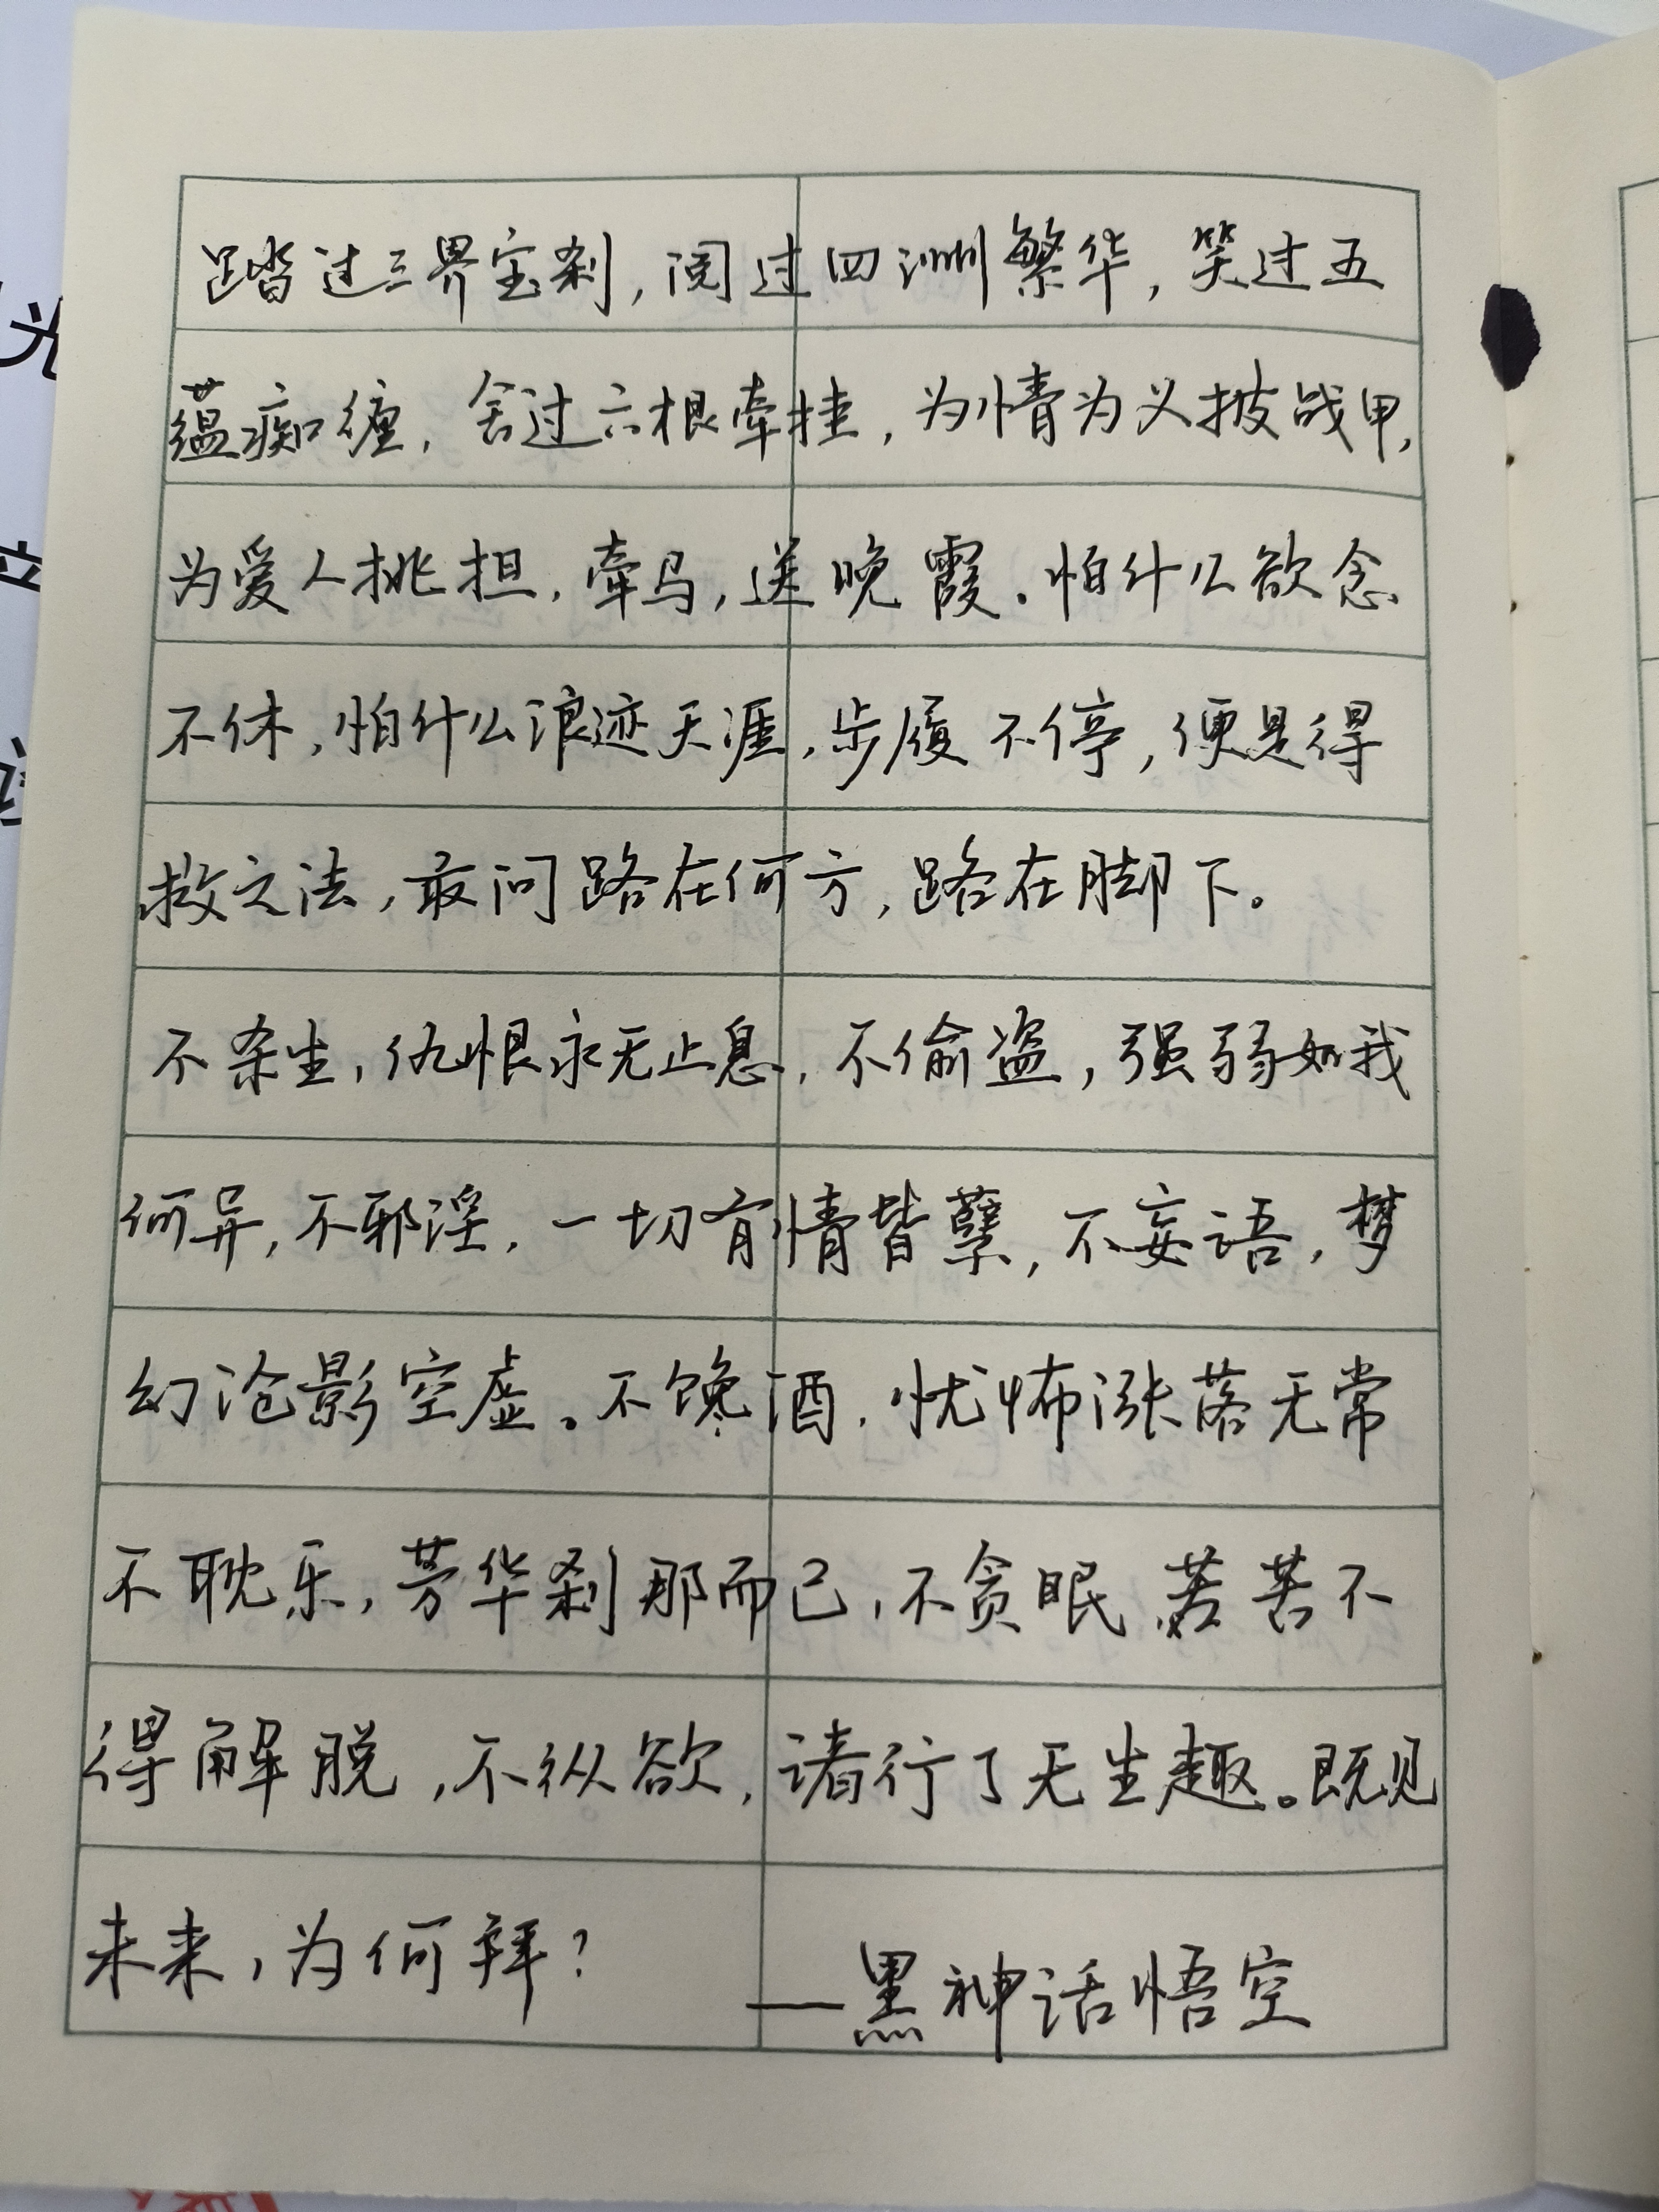 踏过三界宝刹，阅过四洲繁华，笑过五
蕴痴缠，舍过六根牵挂，为情为义披战甲，
为爱人挑担，牵马，送晚霞。怕什么欲念
不休，怕什么浪迹天涯，步履不停，便是得
救之法，敢问路在何方，路在脚下。
不杀生，仇恨永无止息，不偷盗，强弱如我
何异，不邪淫，一切有情皆孽，不妄语，梦
幻沧影空虚。不馋酒，忧怖涨落无常
不耽乐，芳华刹那而已，不贪眠，苦苦不
得解脱，不纵欲，诸行了无生趣。既见
未来，为何拜？
—黑神话悟空